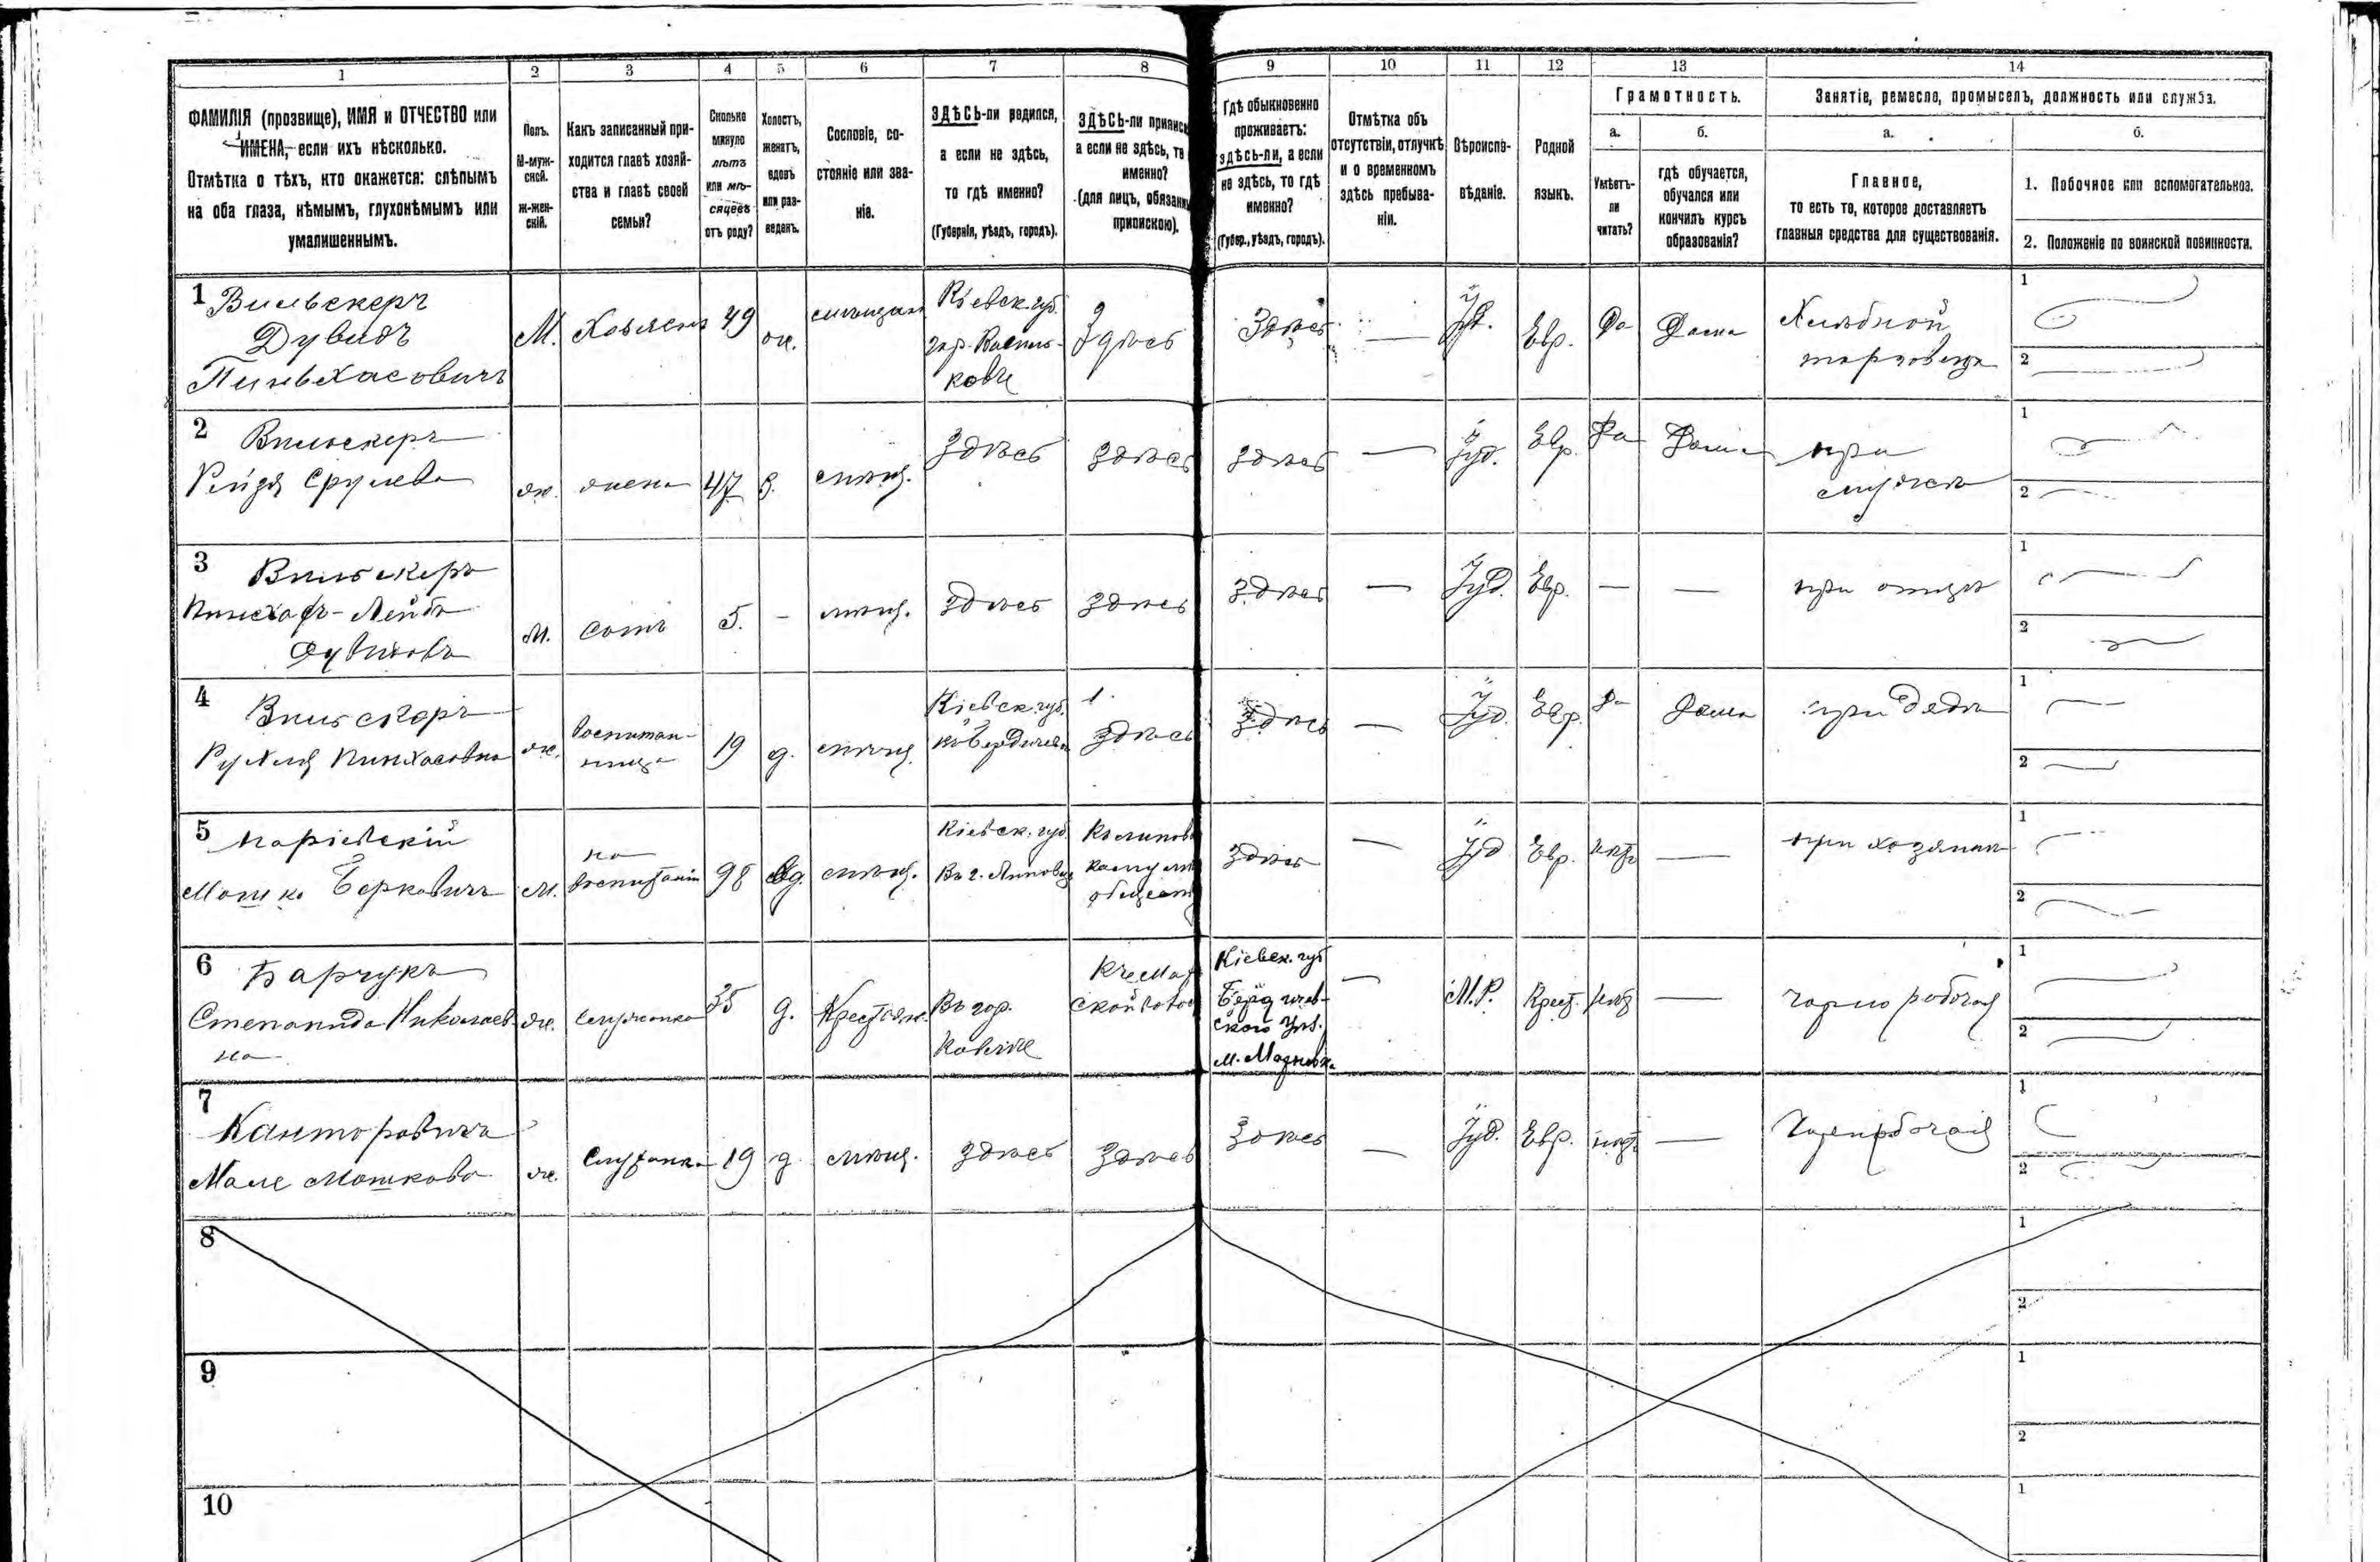 1 2 3 4 5 6 7 8 9 10 11 12 13 14
ФАМИЛІЯ (прозвище), ИМЯ и ОТЧЕСТВО или
ИМЕНА, если ихъ нѣсколько.
Отмѣтка о тѣхъ, кто окажется: слѣпымъ
на оба глаза, нѣмымъ, глухонѣмымъ или
умалишеннымъ.
Полъ.
М-муж-
ской.
Ж-жен-
скій.
Какъ записанный при-
ходится главѣ хозяй-
ства и главѣ своей
семьи?
Сколько
минуло
лѣтъ
или мѣ-
сяцевъ
отъ роду?
Холостъ,
женатъ,
вдовъ
или раз-
веденъ.
Сословіе, со-
стояніе или зва-
ніе.
ЗДѢСЬ-ли родился,
а если не здѣсь,
то гдѣ именно?
(Губернія, уѣздъ, городъ).
ЗДѢСЬ-ли приписа
а если не здѣсь, то
именно?
(для лицъ, обязанн
припискою).
Гдѣ обыкновенно
проживаетъ:
здѣсь-ли, а если
не здѣсь, то гдѣ
именно?
(Губер., уѣздъ, городъ).
Отмѣтка объ
отсутствіи, отлучкѣ
и о временномъ
здѣсь пребыва-
ніи.
Вѣроиспо-
вѣданіе.
Родной
языкъ.
Грамотность.
а.
Умѣетъ-
ли
читать?
б.
гдѣ обучается,
обучался или
кончилъ курсъ
образованія?
Занятіе, ремесло, промыселъ, должность или служба.
а.
Главное,
то есть то, которое доставляетъ
главныя средства для существованія.
б.
1. Побочное или вспомогательное.
2. Положеніе по воинской повинности.
1 Вильскеръ
Дувидъ
Пиньхасовичъ
М. Хозяинъ 49 ж. мѣщан
Кіевск. губ.
гор. Василь-
ковѣ
Здѣсь Здѣсь — Іуд. Евр. Да Дома
Хлѣбной
торговецъ
1
2
2 Вильскеръ
Рейзя Срулева
ж. жена 47 З. мѣщ. Здѣсь Здѣсь Здѣсь — Іуд. Евр. Да Дома
при
мужѣ
1
2
3 Вильскеръ
Пинхасъ-Лейбъ
Дувидовъ
М. сынъ 5. - мѣщ. Здѣсь Здѣсь Здѣсь — Іуд. Евр. — — при отцѣ
1
2
4 Вильскеръ
Рухля Пинхасовна
ж.
воспитан-
ница
19 д. мѣщ.
Кіевск. губ.
Здѣсь Здѣсь — Іуд. Евр. Да Дома при дядѣ
1
2
5
Мошко Берковичъ
М.
на
воспитаніи
98 вд. мѣщ.
Кіевск. губ.
Здѣсь — Іуд Евр. нѣтъ — при хозяинѣ
1
2
6 Барчукъ
Степанида Николаев-
на
ж. служанка 35 д. Крестьян.
Въ гор.
Кіевск. губ
Бердичев-
скаго Уѣз.
М.Р. Крест. нѣтъ — чорно рабочая
1
2
7
Канторовичъ
Мале Мошкова
ж. Служанка 19 д. мѣщ. Здѣсь Здѣсь Здѣсь — Іуд. Евр. нѣтъ —
1
2
8
1
2
9
1
2
10
1